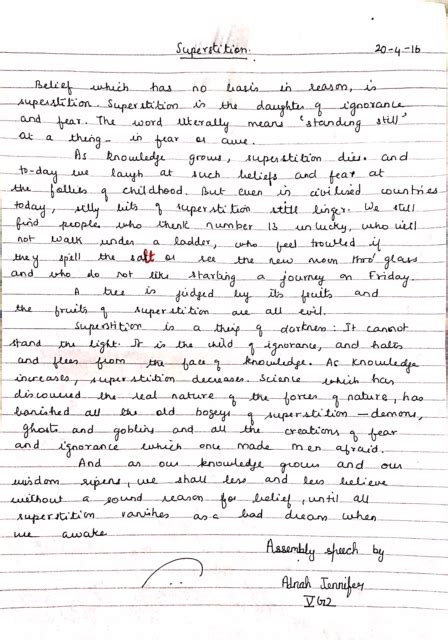 Superstition.
20-4-16
Belief which has no basis in reason, is
superstition. Superstition is the daughter of ignorance
and fear. The word literally means 'standing still'
at a thing - in fear or awe.
As knowledge grows, superstition dies. and
to-day we laugh at such beliefs and fear at
the follies of childhood. But even in civilised countries
today, silly bits of superstition still linger. We still
find people who think number 13 unlucky, who will
not walk under a ladder, who feel troubled if
they spell the salt or see the new moon thro' glass
and who do not like starting a journey on Friday.
A tree is judged by its fruits and
the fruits of superstition are all evil.
Superstition is a thing of darkness: It cannot
stand the light. It is the child of ignorance, and hates
and flees from the face of knowledge. As knowledge
increases, superstition decreases. Science which has
discovered the real nature of the forces of nature, has
banished all the old bogeys of superstition — demons,
ghosts and goblins and all the creations of fear
and ignorance which once made men afraid.
And as our knowledge grows and our
wisdom ripens, we shall less and less believe
without a sound reason for belief, until all
superstition vanishes as a bad dream when
we awake
Assembly speech by
Adnah Jennifer
V G2